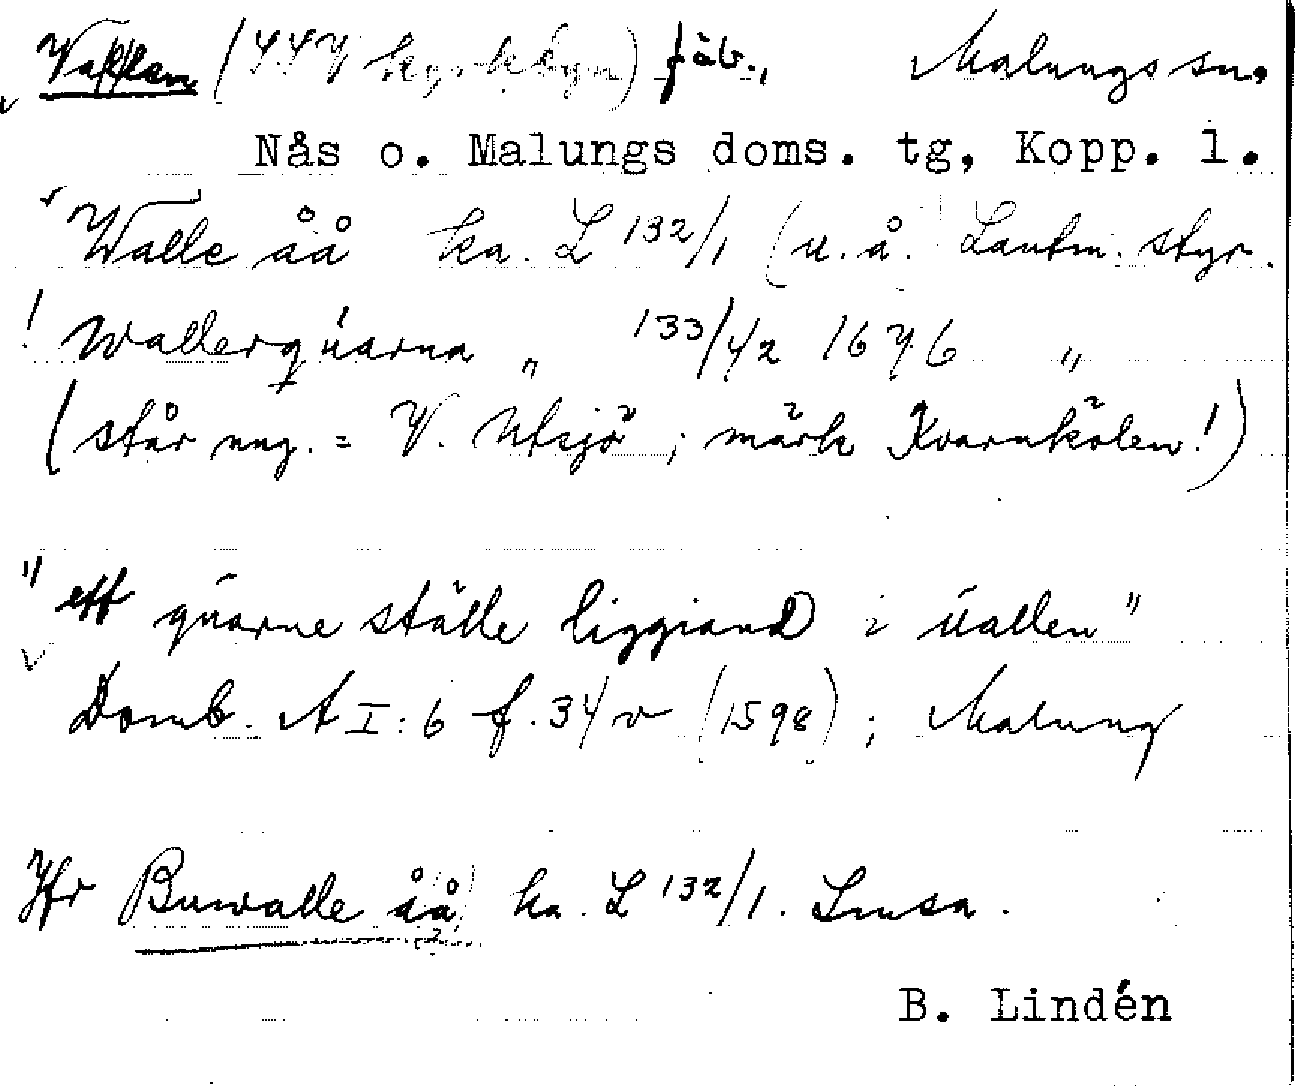 Vallen (447 kyrkbyn) fäb., Malungs sn.
Nås o. Malungs doms. tg, Kopp. l.
Walle åå ka. L 132/1 (u.å. Lantm. styr.
! wallerquarna „ 133/42 1676 „
(står ung. = V. Utsjö ; märk Kvarnkölen!)
"ett quarne ställe liggiand i uallen"
Domb. A I:6 f. 34 v (1598) ; Malung
Jfr Buwalle åå ka. L 132/1. Lmsa.
B. Lindén